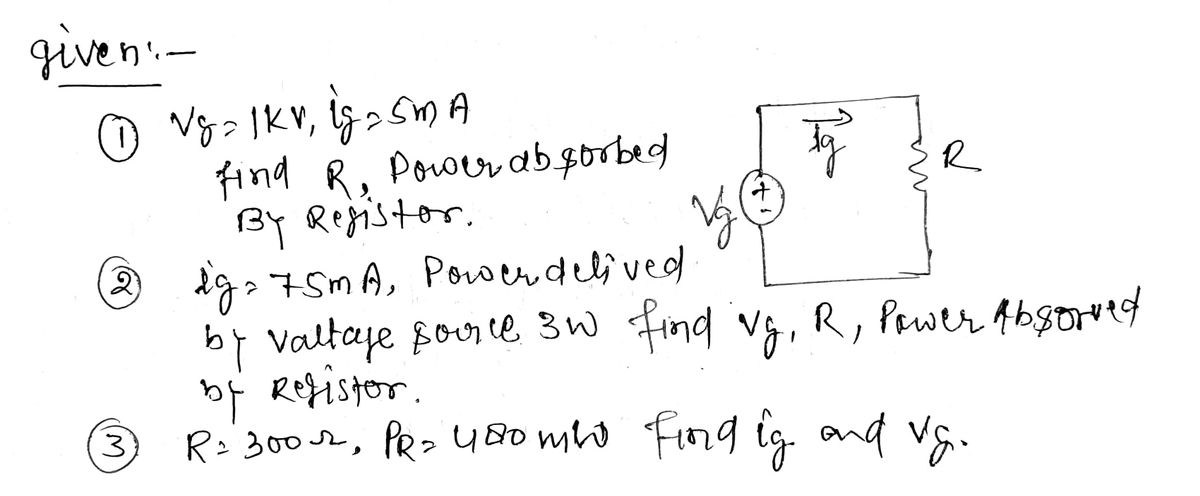 given:-
① Vg = 1KV, ig = 5mA
find R, Power absorbed
By Registor.
② ig = 75mA, Power delived
by valtage source 3W find vg, R, Power Absorved
by Registor.
③ R = 300Ω, PR = 480 mW Find ig and vg.
ig
R
Vg
+
-